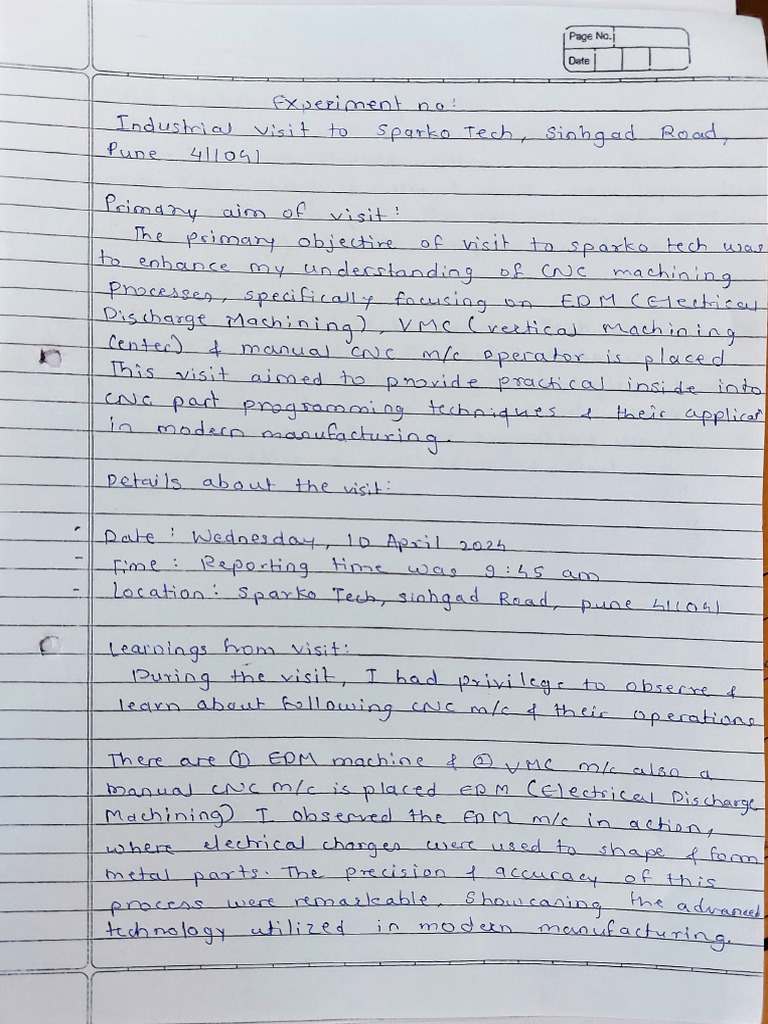 Page No.
Date
Experiment no:
Industrial visit to Sparko Tech, Sinhgad Road,
Pune 411041
Primary aim of visit:
The primary objective of visit to sparko tech was
to enhance my understanding of CNC machining
processes, specifically focusing on EDM (Electrical
Discharge Machining), VMC (vertical Machining
Center) & manual CNC m/c operator is placed
This visit aimed to provide practical inside into
CNC part programming techniques & their applicat
in modern manufacturing.
Details about the visit:
Date : Wednesday, 10 April 2024
- Time : Reporting time was 9:45 am
- Location : Sparko Tech, sinhgad Road, pune 411041
Learnings from visit:
During the visit, I had privilege to observe &
learn about following CNC m/c & their operations
There are ① EDM machine & ② VMC m/c also a
manual CNC m/c is placed EDM (Electrical Discharge
Machining) I observed the EDM m/c in action,
where electrical charges were used to shape & form
metal parts. The precision & accuracy of this
process were remarkable, showcasing the advanced
technology utilized in modern manufacturing.